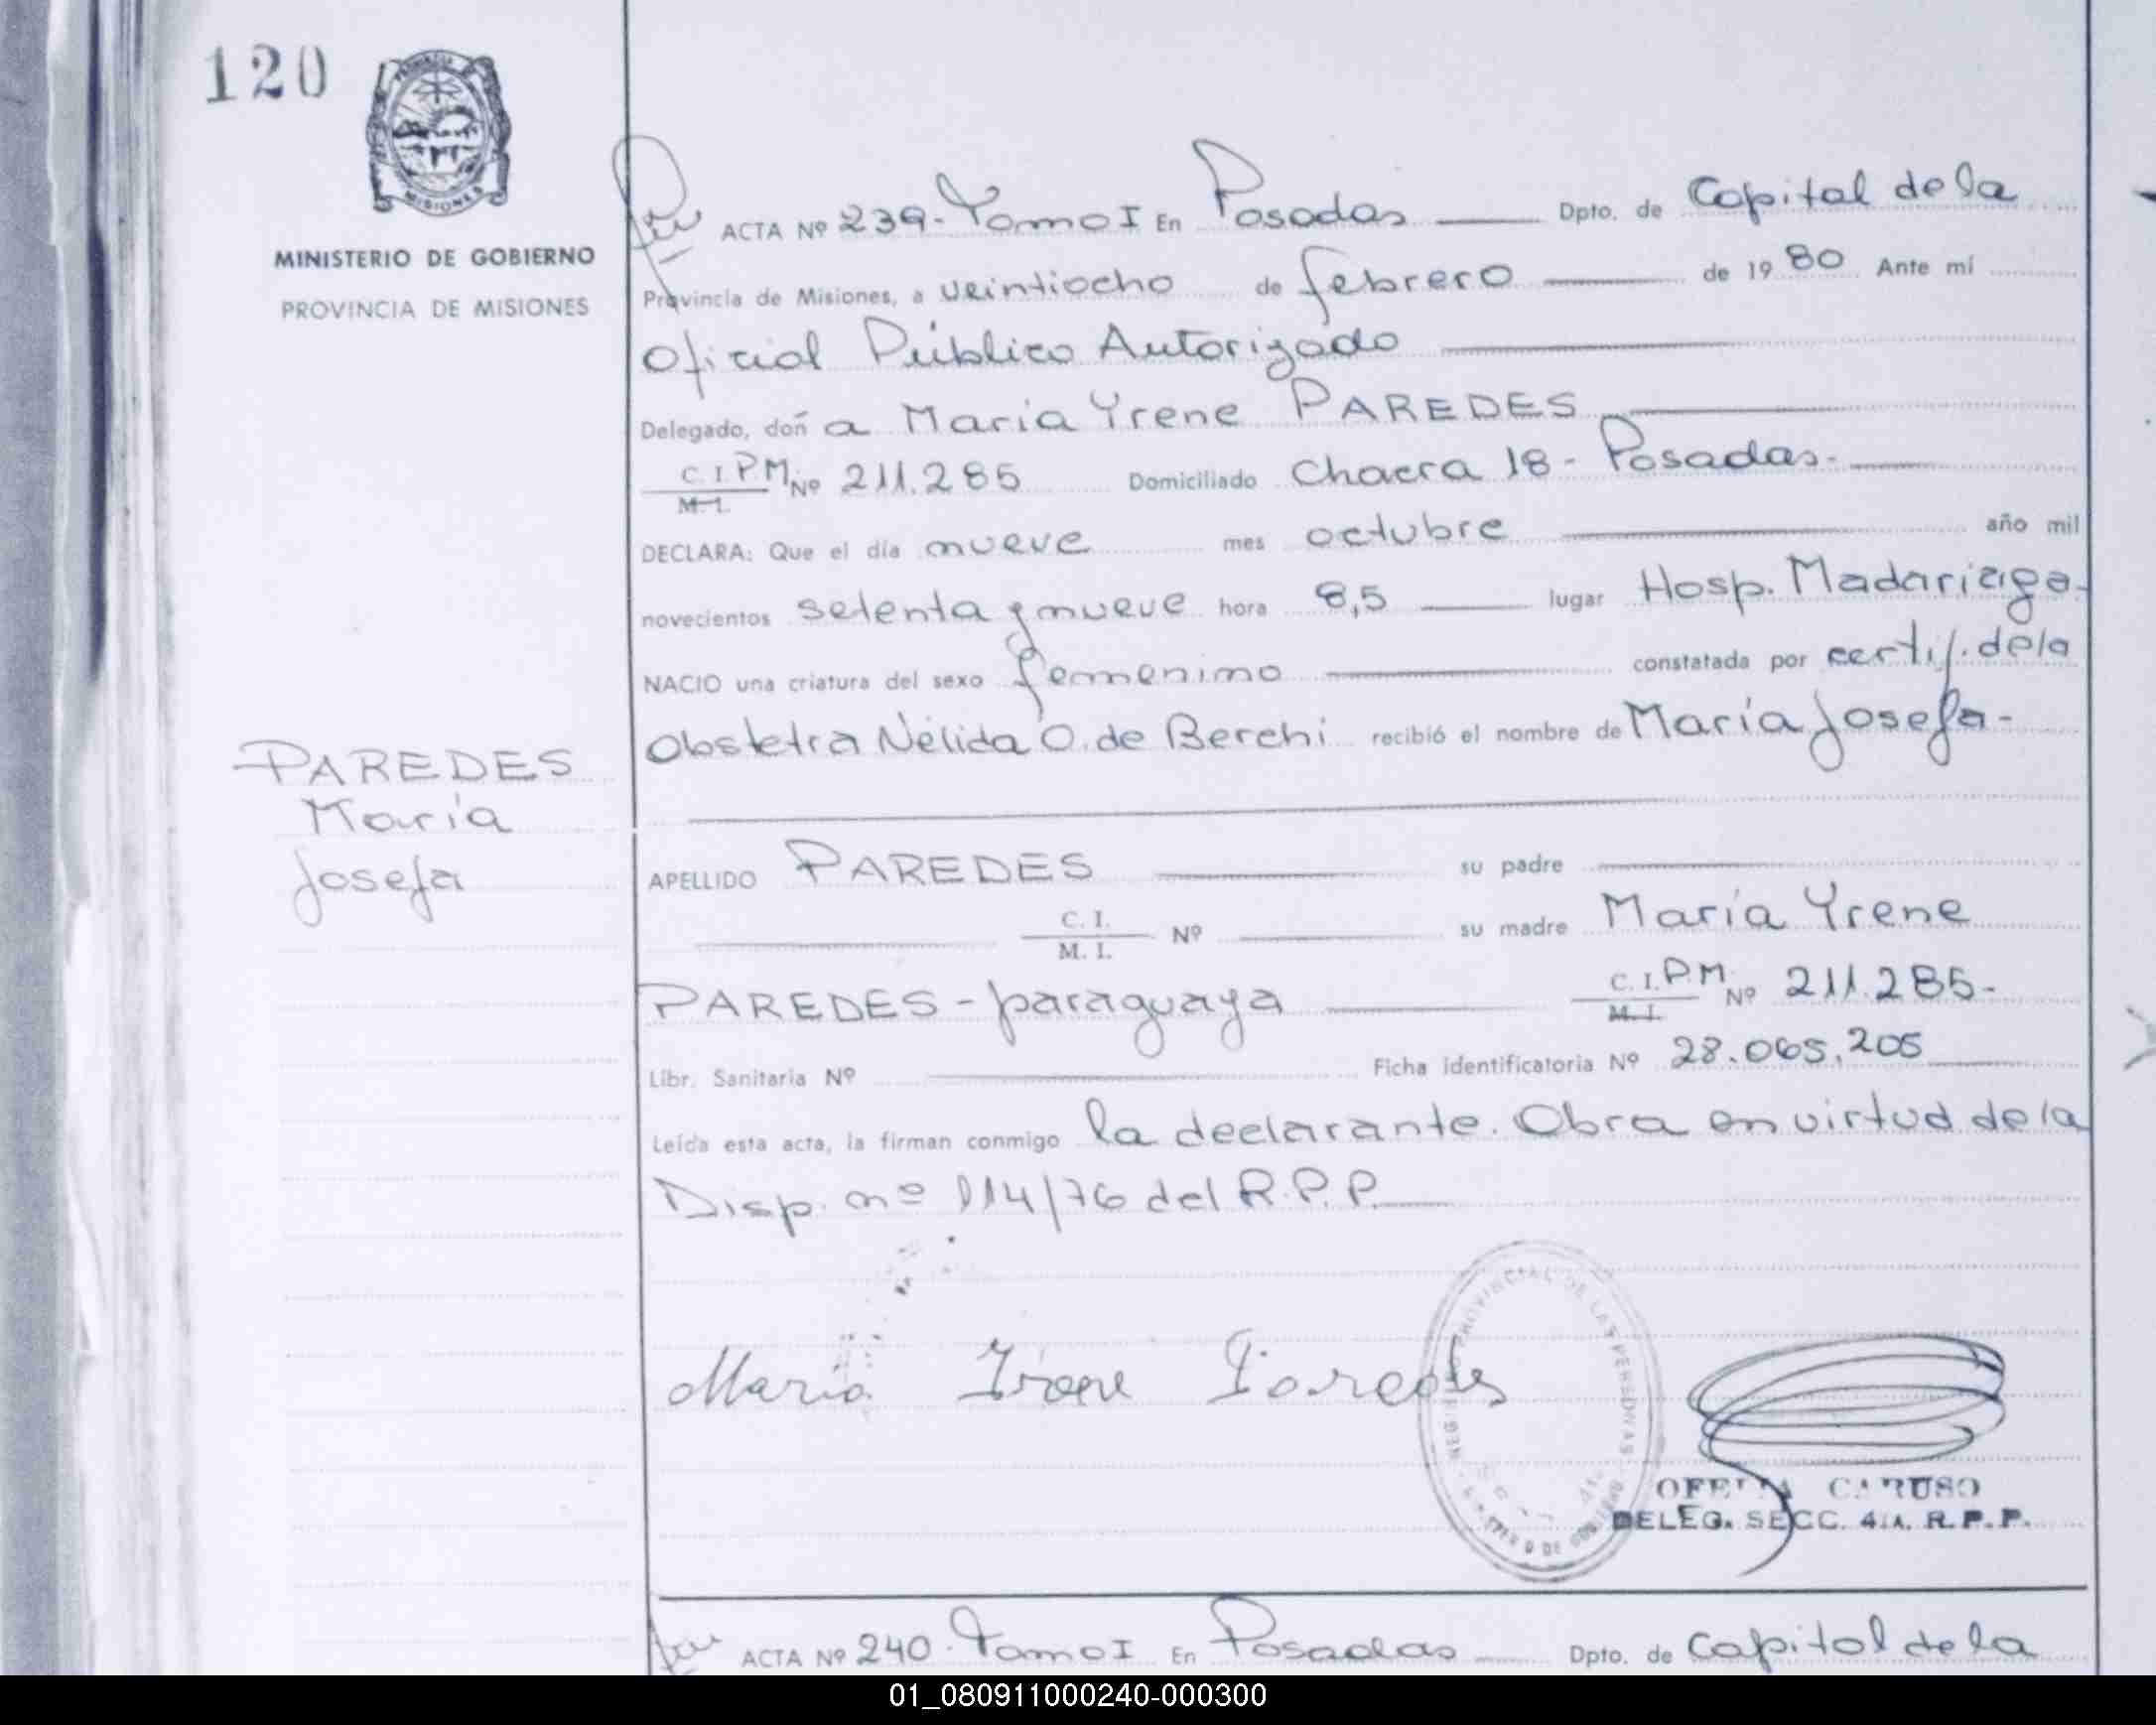 120
MISIONES
MINISTERIO DE GOBIERNO
PROVINCIA DE MISIONES
ACTA Nº 239-Tomo I En Posadas Dpto. de Capital de la
Provincia de Misiones, a veintiocho de febrero de 1980 Ante mí
Oficial Público Autorizado
Delegado, doña María Yrene PAREDES
C.I.P.M. M.I. Nº 211.285 Domiciliado Chacra 18- Posadas.
DECLARA: Que el día nueve mes octubre año mil
novecientos setenta y nueve hora 8,5 lugar Hosp. Madariaga-
NACIO una criatura del sexo femenino constatada por certif. de la
Obstetra Nélida O. de Berchi recibió el nombre de María Josefa-
PAREDES
María
Josefa
APELLIDO PAREDES su padre
C.I. M.I. Nº su madre María Yrene
PAREDES - paraguaya C.I.P.M. M.I. Nº 211.285-
Libr. Sanitaria Nº Ficha identificatoria Nº 28.065.205
Leída esta acta, la firman conmigo la declarante. Obra en virtud de la
Disp. nº 114/76 del R.P.P.
María Irene Paredes
PROVINCIAL DE LAS PERSONAS
CARUSO
DELEG. SECC. 4ta. R.P.P.
ACTA Nº 240- Tomo I En Posadas Dpto. de Capital de la
01_080911000240-000300